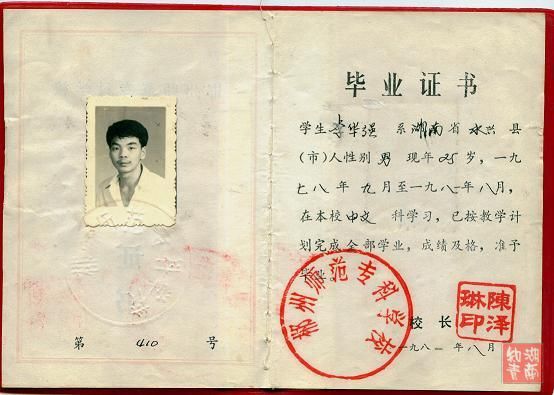 第 410 号
毕业证书
学生 华强 系湖南省永兴县
(市)人性别男 现年25岁,一九
七八年九月至一九八一年八月,
在本校中文 科学习,已按教学计
划完成全部学业,成绩及格,准予
毕业。
郴州师范专科学校
校长
陳泽琳印
一九八一年八月
湖南知青